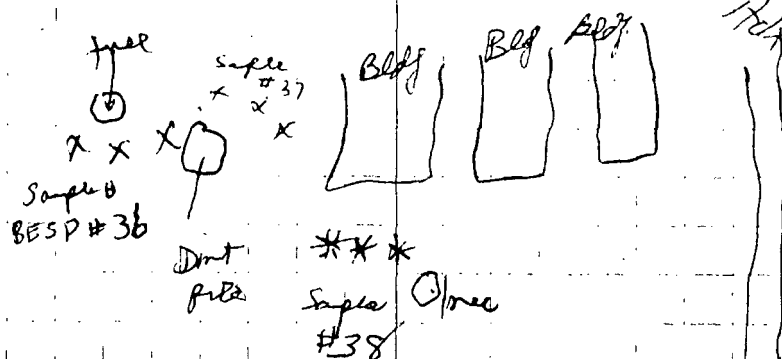 tree
Sample
#37
Bldg
Bldg
Bldg
Sample #
BESP #36
Dirt
pile
Sample
#38
tree